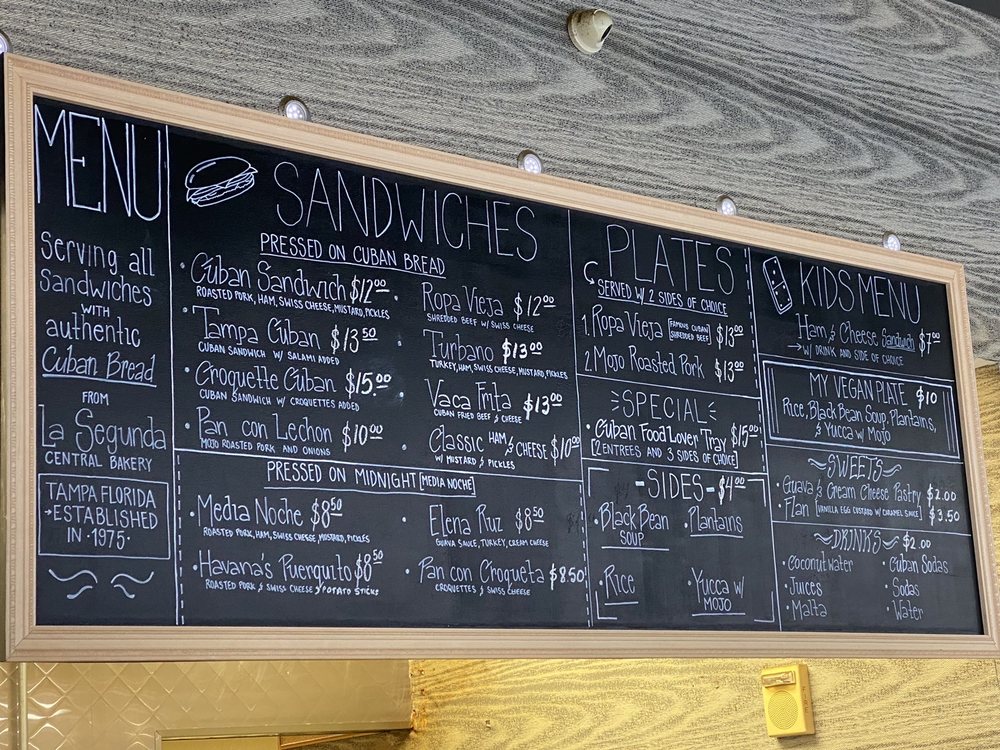 MENU
Serving all
Sandwiches
WITH
authentic
Cuban Bread
FROM
La Segunda
CENTRAL BAKERY
TAMPA FLORIDA
→ESTABLISHED
IN ·1975·
SANDWICHES
PRESSED ON CUBAN BREAD
· Cuban Sandwich $12.00
ROASTED PORK, HAM, SWISS CHEESE, MUSTARD, PICKLES
· Tampa Cuban $13.50
CUBAN SANDWICH W/ SALAMI ADDED
· Croquette Cuban $15.00
CUBAN SANDWICH W/ CROQUETTES ADDED
· Pan con Lechon $10.00
MOJO ROASTED PORK AND ONIONS
· Ropa Vieja $12.00
SHREDDED BEEF W/ SWISS CHEESE
· Turbano $13.00
TURKEY, HAM, SWISS CHEESE, MUSTARD, PICKLES
· Vaca Frita $13.00
CUBAN FRIED BEEF & CHEESE
· Classic HAM & CHEESE $10.00
W/ MUSTARD & PICKLES
PRESSED ON MIDNIGHT [MEDIA NOCHE]
· Media Noche $8.50
ROASTED PORK, HAM, SWISS CHEESE, MUSTARD, PICKLES
· Havana's Puerquito $8.50
ROASTED PORK & SWISS CHEESE & POTATO STICKS
· Elena Ruz $8.50
GUAVA SAUCE, TURKEY, CREAM CHEESE
· Pan con Croqueta $8.50
CROQUETTES & SWISS CHEESE
PLATES
SERVED W/ 2 SIDES OF CHOICE
1. Ropa Vieja [FAMOUS CUBAN SHREDDED BEEF] $13.00
2. Mojo Roasted Pork $13.00
SPECIAL
· Cuban Food Lover Tray $15.00
[2 ENTREES AND 3 SIDES OF CHOICE]
-SIDES- $4.00
· Black Bean
SOUP
· Plantains
· Rice
· Yucca W/
MOJO
KIDS MENU
Ham & Cheese Sandwich $7.00
→ W/ DRINK AND SIDE OF CHOICE
MY VEGAN PLATE $10
Rice, Black Bean Soup, Plantains,
& Yucca w/ Mojo
SWEETS
· Guava & Cream Cheese Pastry $2.00
· Flan [VANILLA EGG CUSTARD W/ CARAMEL SAUCE] $3.50
DRINKS $2.00
· Coconut water
· Juices
· Malta
· Cuban Sodas
· Sodas
· Water